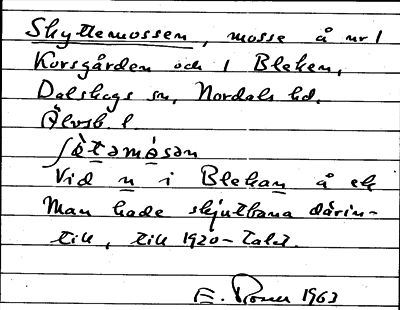 Skyttemossen, mosse å nr 1
Korsgården och 1 Bleken,
Dalskogs sn, Nordals hd.
Älvsb. l.
ʃø̀təmɷ́sən
Vid n i Blekan å ek
Man hade skjutbana därin-
till, till 1920-talet.
E. 1963